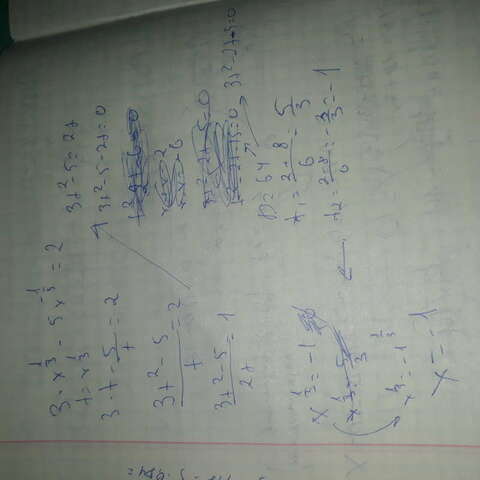 3 · x^{1/3} - 5x^{-1/3} = 2
t = x^{1/3}
3 · t - 5/t = 2
(3t² - 5)/t = 2
(3t² - 5)/2t = 1
3t² - 5 = 2t
3t² - 5 - 2t = 0
D = 64
3t² - 2t - 5 = 0
t₁ = (2 + 8)/6 = 5/3
t₂ = (2 - 8)/6 = -3/3 = -1
x^{1/3} = -1
x^{1/3} = 5/3
x^{1/3} = -1^{1/3}
x = -1